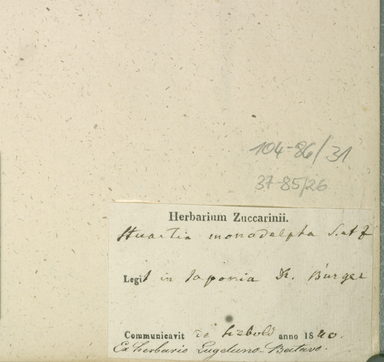 104-86/31
37-85/26
Herbarium Zuccarinii.
Stuartia monadelpha S. et Z
Legit in Japonia Dr. Bürger
Communicavit de Siebold anno 1840.
Ex herbario Lugduno-Batavo.